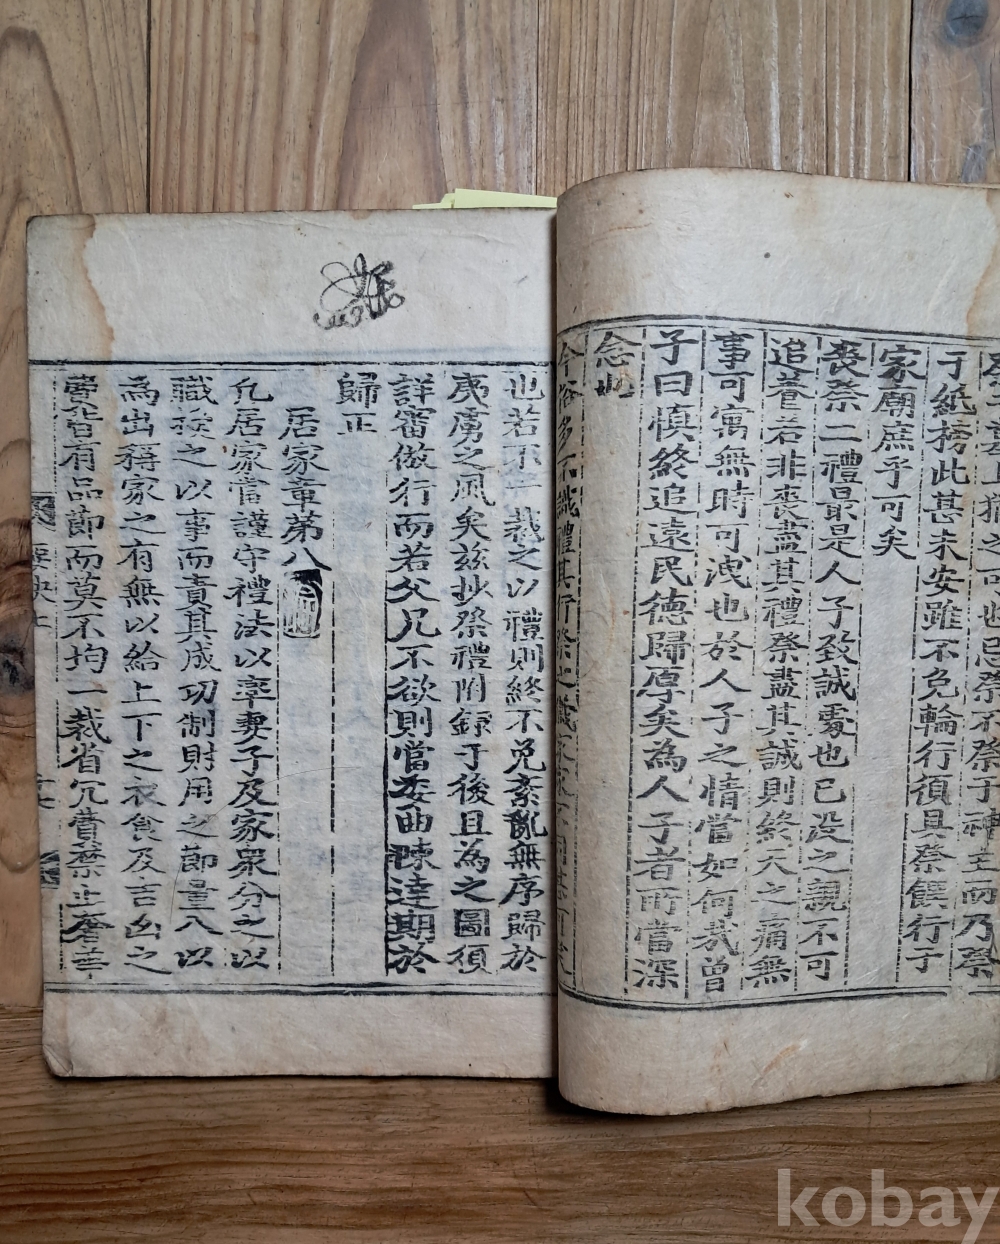 祭于墓上猶之可也忌祭不祭于神主而乃祭
于紙榜此甚未安雖不免輪行須具祭饌行于
家廟庶乎可矣
喪祭二禮最是人子致誠處也已沒之親不可
追養若非喪盡其禮祭盡其誠則終天之痛無
事可寓無時可洩也於人子之情當如何哉曾
子曰慎終追遠民德歸厚矣為人子者所當深
念也
今俗多不識禮其行祭之儀家家不同甚可笑
也若不一裁之以禮則終不免紊亂無序歸於
夷虜之風矣茲抄祭禮附錄于後且為之圖須
詳審倣行而若父兄不欲則當委曲陳達期於
歸正
居家章第八
凡居家當謹守禮法以率妻子及家眾分之以
職授之以事而責其成功制財用之節量入以
為出稱家之有無以給上下之衣食及吉凶之
費皆有品節而莫不均一裁省冗費禁止奢華
要訣
kobay